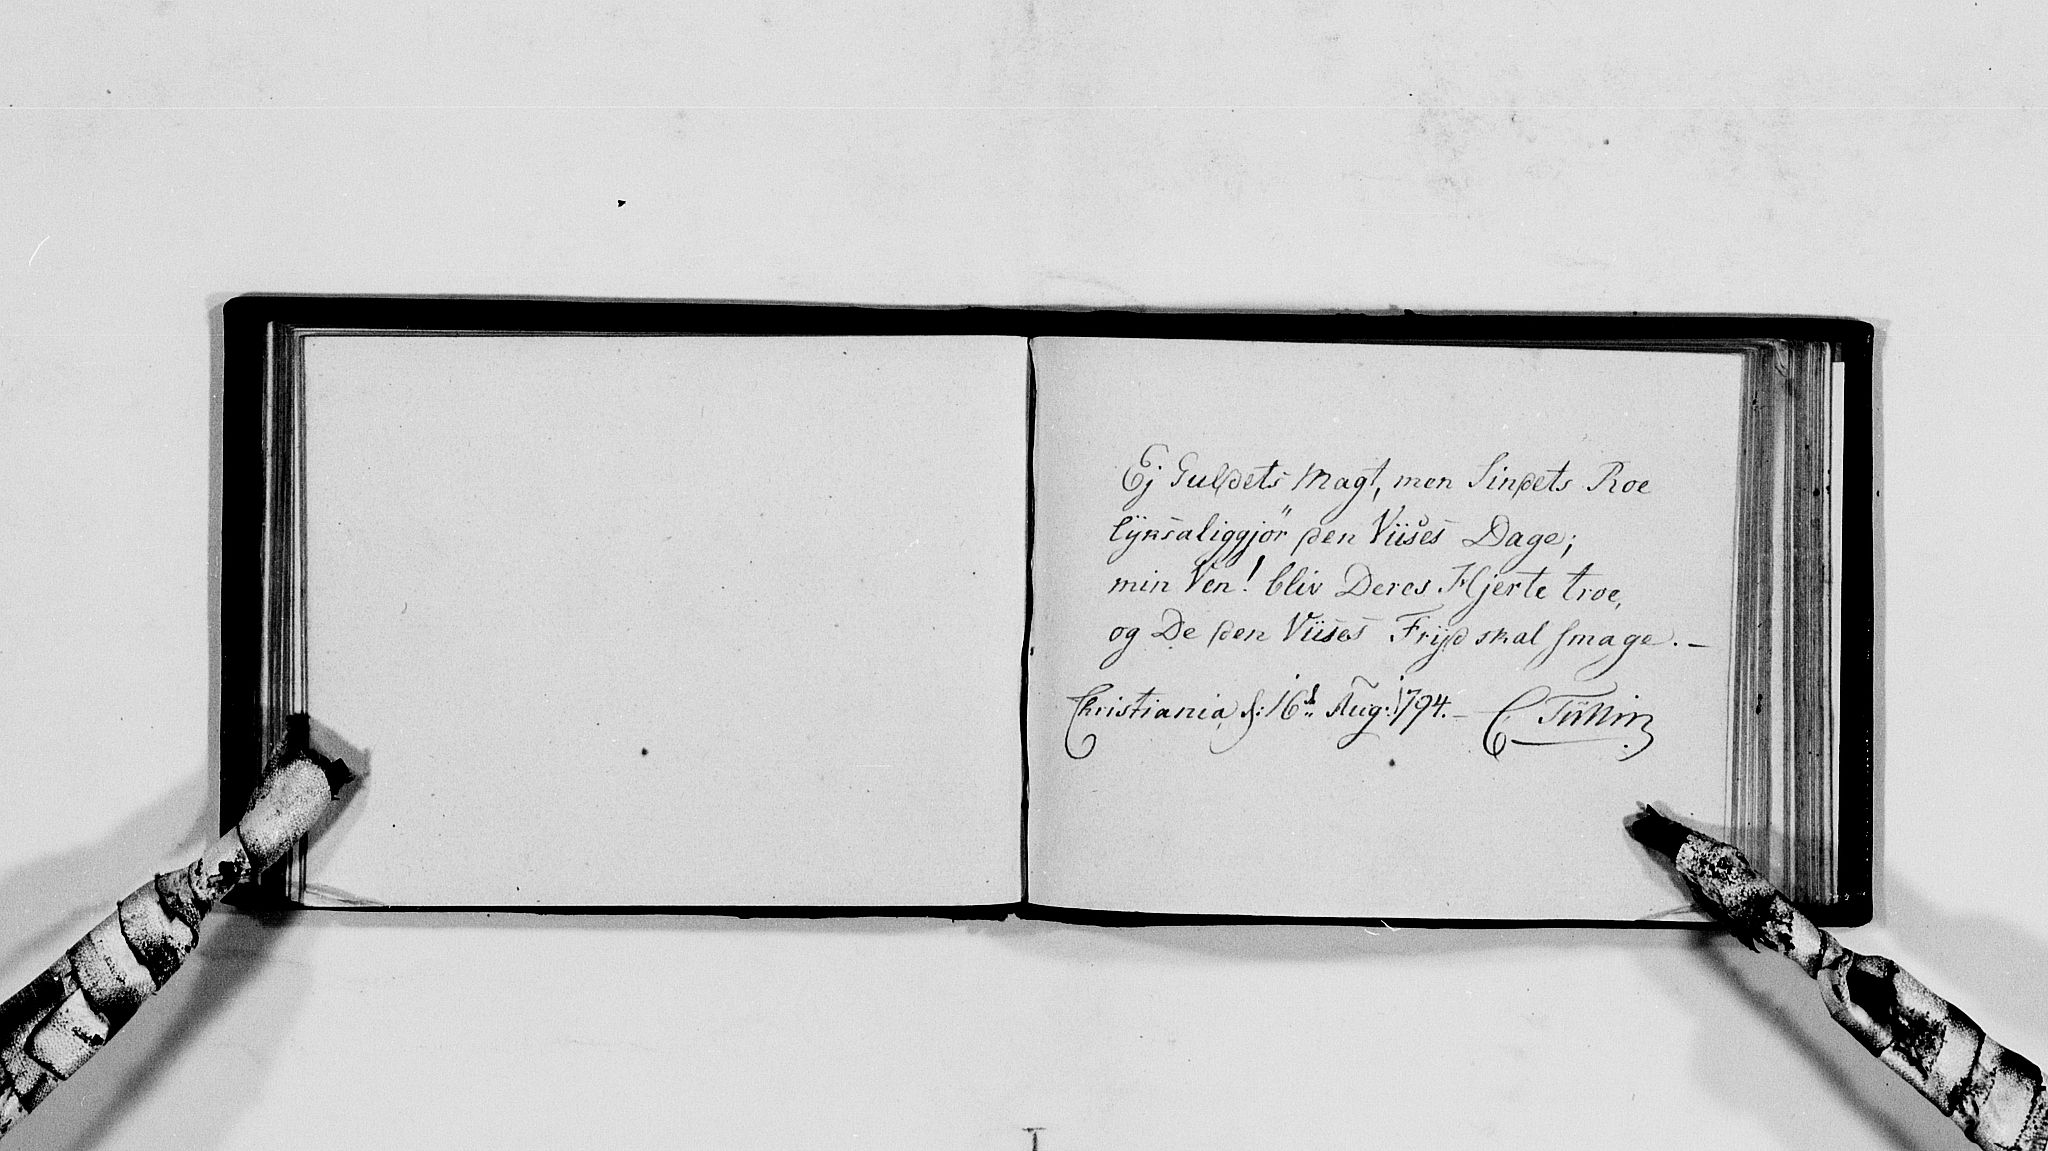 Ej Guldets Magt, men Sindets Roe
lÿksaliggjör den Viises Dage;
min Ven! bliv Deres Hjerte troe,
og De den Viises Frÿd skal smage. –
Christiania, d: 16d: Aug: 1794. – C Tüllin